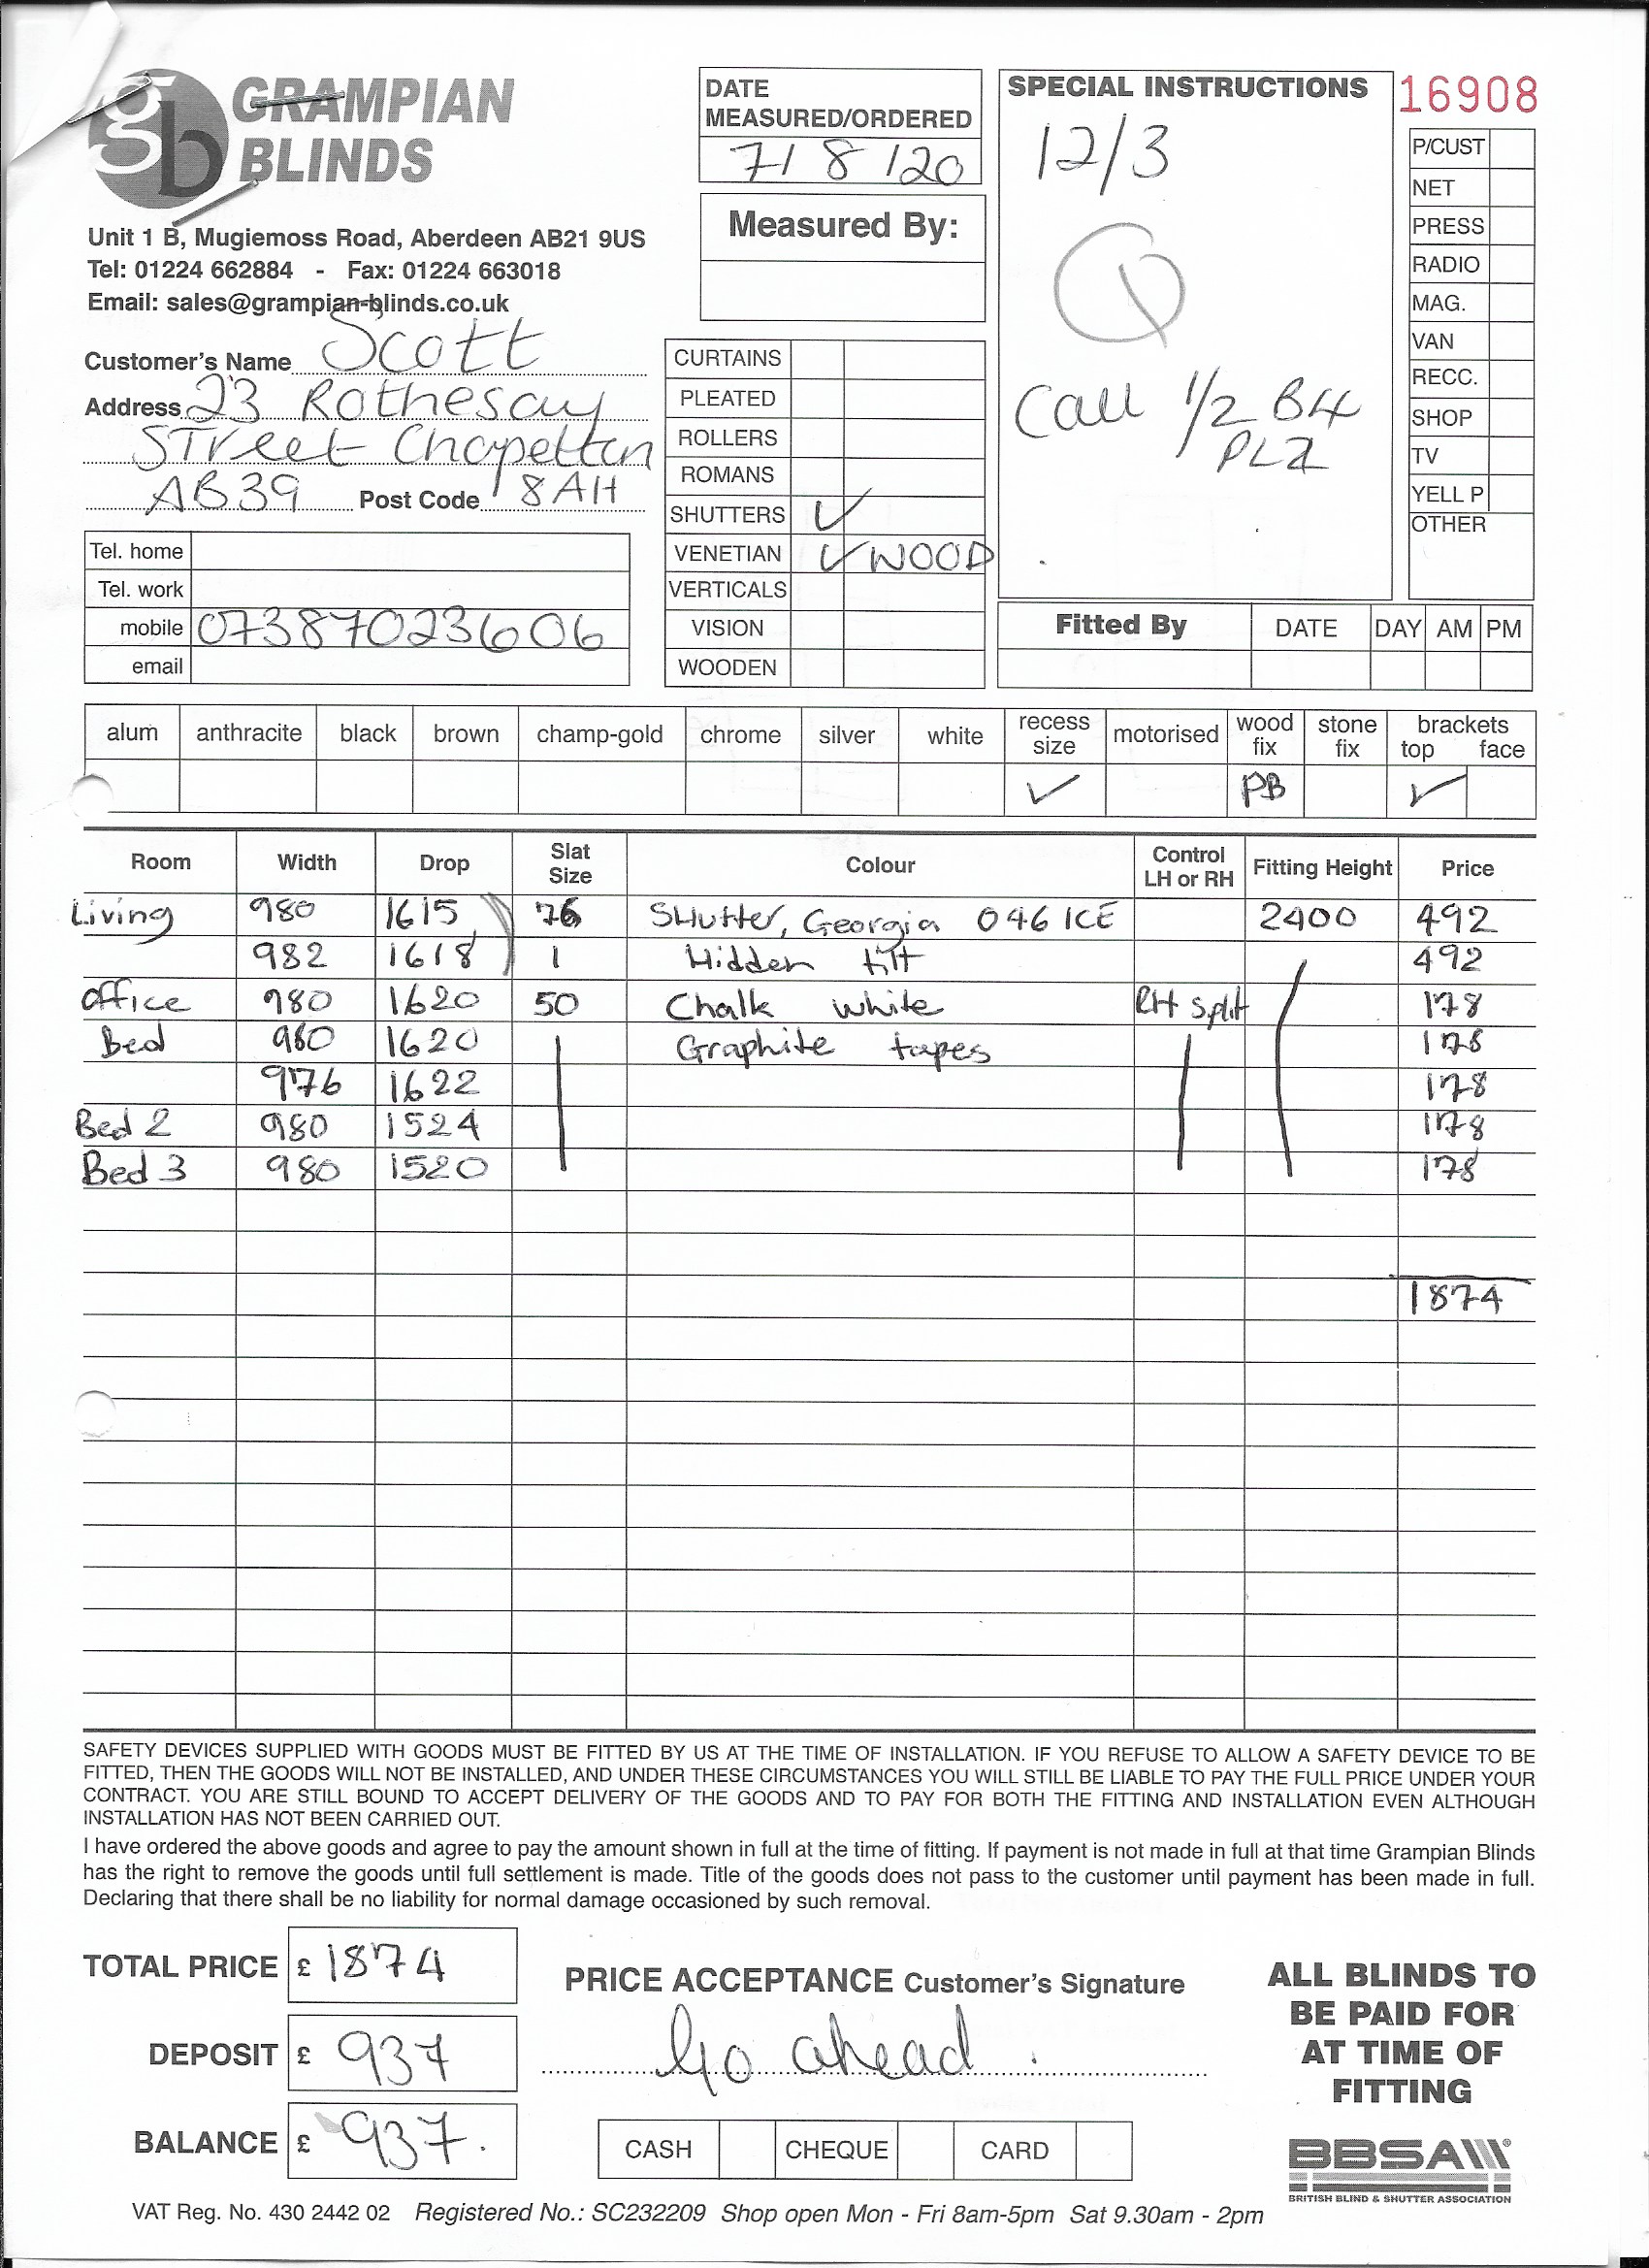 gb GRAMPIAN BLINDS
Unit 1 B, Mugiemoss Road, Aberdeen AB21 9US
Tel: 01224 662884 - Fax: 01224 663018
Email: sales@grampian-blinds.co.uk
Customer's Name Scott
Address 23 Rothesay
Street Chapelton
AB39 Post Code 8AH
Tel. home
Tel. work
mobile 07387023606
email
DATE MEASURED/ORDERED
7/8/20
Measured By:
CURTAINS
PLEATED
ROLLERS
ROMANS
SHUTTERS ✓
VENETIAN ✓ WOOD
VERTICALS
VISION
WOODEN
SPECIAL INSTRUCTIONS
12/3
Q
Call 1/2 B4
PLZ
16908
P/CUST
NET
PRESS
RADIO
MAG.
VAN
RECC.
SHOP
TV
YELL P
OTHER
Fitted By DATE DAY AM PM
alum anthracite black brown champ-gold chrome silver white recess size motorised wood fix stone fix brackets top face
✓ PB ✓
Room Width Drop Slat Size Colour Control LH or RH Fitting Height Price
Living 980 1615 76 SHutter, Georgia 046 ICE 2400 492
982 1618 1 Hidden tilt 492
office 980 1620 50 Chalk white RH split 178
Bed 980 1620 Graphite tapes 178
976 1622 178
Bed 2 980 1524 178
Bed 3 980 1520 178
1874
SAFETY DEVICES SUPPLIED WITH GOODS MUST BE FITTED BY US AT THE TIME OF INSTALLATION. IF YOU REFUSE TO ALLOW A SAFETY DEVICE TO BE
FITTED, THEN THE GOODS WILL NOT BE INSTALLED, AND UNDER THESE CIRCUMSTANCES YOU WILL STILL BE LIABLE TO PAY THE FULL PRICE UNDER YOUR
CONTRACT. YOU ARE STILL BOUND TO ACCEPT DELIVERY OF THE GOODS AND TO PAY FOR BOTH THE FITTING AND INSTALLATION EVEN ALTHOUGH
INSTALLATION HAS NOT BEEN CARRIED OUT.
I have ordered the above goods and agree to pay the amount shown in full at the time of fitting. If payment is not made in full at that time Grampian Blinds
has the right to remove the goods until full settlement is made. Title of the goods does not pass to the customer until payment has been made in full.
Declaring that there shall be no liability for normal damage occasioned by such removal.
TOTAL PRICE £ 1874
DEPOSIT £ 937
BALANCE £ 937.
PRICE ACCEPTANCE Customer's Signature
Go ahead.
CASH CHEQUE CARD
ALL BLINDS TO
BE PAID FOR
AT TIME OF
FITTING
BBSA
BRITISH BLIND & SHUTTER ASSOCIATION
VAT Reg. No. 430 2442 02 Registered No.: SC232209 Shop open Mon - Fri 8am-5pm Sat 9.30am - 2pm